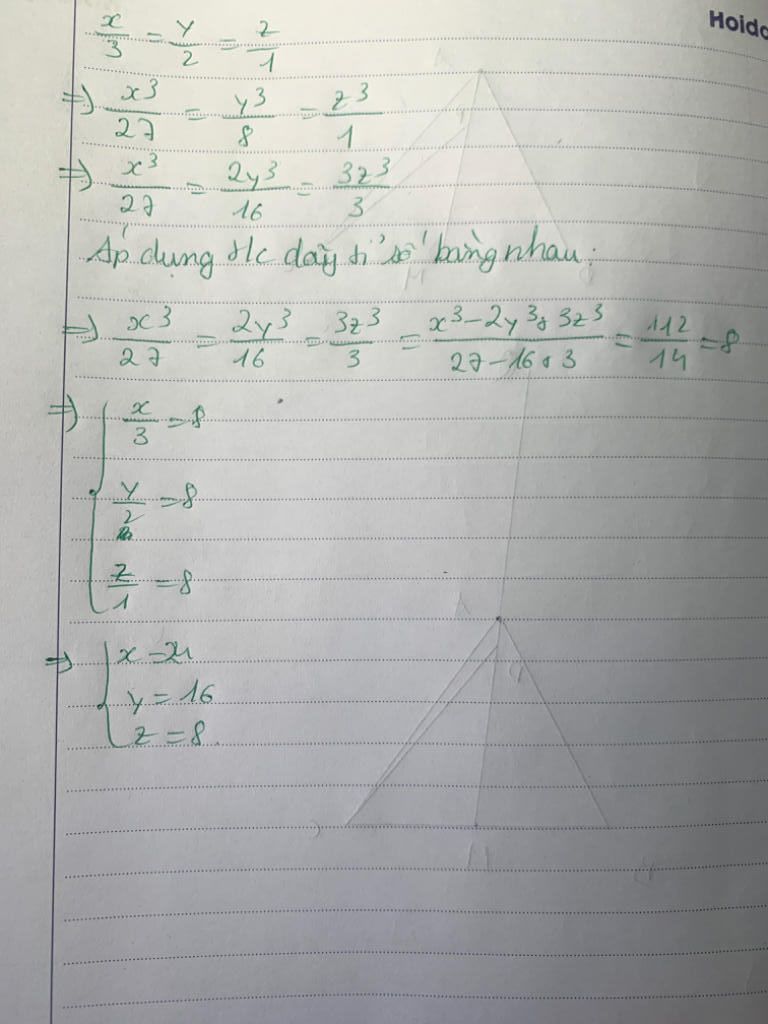 Hoido
x/3 = y/2 = z/1
=> x³/27 = y³/8 = z³/1
=> x³/27 = 2y³/16 = 3z³/3
Áp dụng t/c dãy tỉ số bằng nhau:
=> x³/27 = 2y³/16 = 3z³/3 = x³-2y³+3z³/27-16+3 = 112/14 = 8
=> { x/3 = 8
y/2 = 8
z/1 = 8
=> { x = 24
y = 16
z = 8
A
M